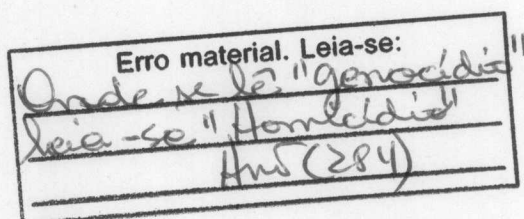 Erro material. Leia-se:
Onde se lê "genocídio"
leia-se "Homicídio"
(284)